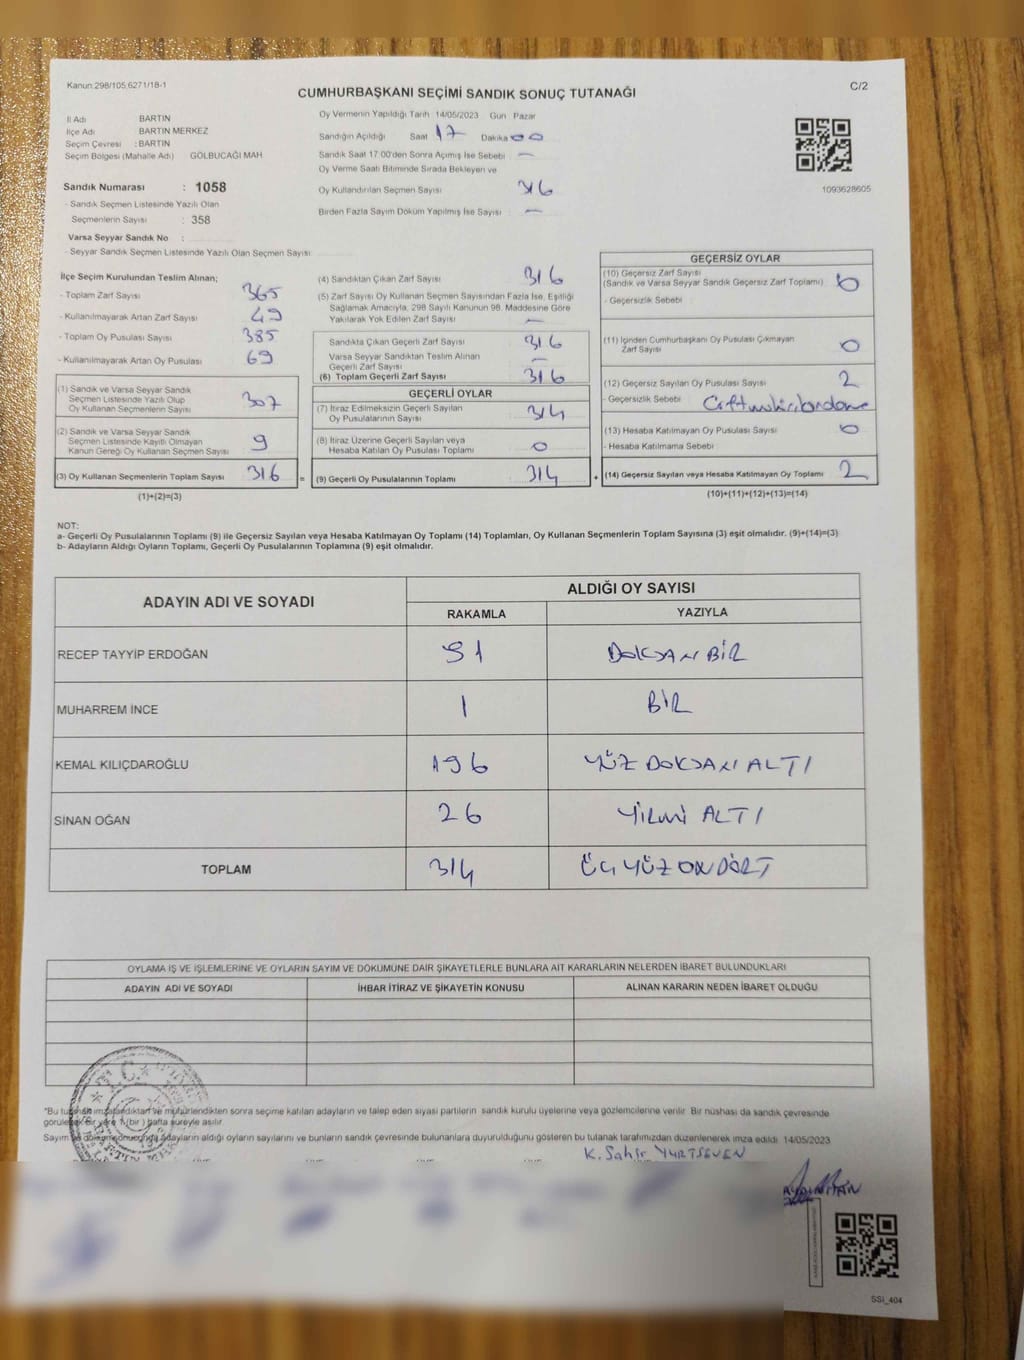 Kanun:298/105,6271/18-1
C/2
CUMHURBAŞKANI SEÇİMİ SANDIK SONUÇ TUTANAĞI
İl Adı BARTIN
İlçe Adı BARTIN MERKEZ
Seçim Çevresi : BARTIN
Seçim Bölgesi (Mahalle Adı) GÖLBUCAĞI MAH
Sandık Numarası : 1058
- Sandık Seçmen Listesinde Yazılı Olan
Seçmenlerin Sayısı : 358
Varsa Seyyar Sandık No :
- Seyyar Sandık Seçmen Listesinde Yazılı Olan Seçmen Sayısı:
Oy Vermenin Yapıldığı Tarih 14/05/2023 Gün Pazar
Sandığın Açıldığı Saat 17 Dakika 00
Sandık Saat 17:00'den Sonra Açımış İse Sebebi —
Oy Verme Saati Bitiminde Sırada Bekleyen ve
Oy Kullandırılan Seçmen Sayısı 316
Birden Fazla Sayım Döküm Yapılmış İse Sayısı : —
1093628605
İlçe Seçim Kurulundan Teslim Alınan;
- Toplam Zarf Sayısı 365
- Kullanılmayarak Artan Zarf Sayısı 49
- Toplam Oy Pusulası Sayısı 385
- Kullanılmayarak Artan Oy Pusulası 69
(1) Sandık ve Varsa Seyyar Sandık
Seçmen Listesinde Yazılı Olup
Oy Kullanan Seçmenlerin Sayısı 307
(2) Sandık ve Varsa Seyyar Sandık
Seçmen Listesinde Kayıtlı Olmayan
Kanun Gereği Oy Kullanan Seçmen Sayısı 9
(3) Oy Kullanan Seçmenlerin Toplam Sayısı 316
(1)+(2)=(3)
(4) Sandıktan Çıkan Zarf Sayısı 316
(5) Zarf Sayısı Oy Kullanan Seçmen Sayısından Fazla İse, Eşitliği
Sağlamak Amacıyla, 298 Sayılı Kanunun 98. Maddesine Göre
Yakılarak Yok Edilen Zarf Sayısı —
Sandıkta Çıkan Geçerli Zarf Sayısı 316
Varsa Seyyar Sandıktan Teslim Alınan
Geçerli Zarf Sayısı —
(6) Toplam Geçerli Zarf Sayısı 316
GEÇERLİ OYLAR
(7) İtiraz Edilmeksizin Geçerli Sayılan
Oy Pusulalarının Sayısı 314
(8) İtiraz Üzerine Geçerli Sayılan veya
Hesaba Katılan Oy Pusulası Toplamı 0
= (9) Geçerli Oy Pusulalarının Toplamı 314 +
GEÇERSİZ OYLAR
(10) Geçersiz Zarf Sayısı
(Sandık ve Varsa Seyyar Sandık Geçersiz Zarf Toplamı) 0
- Geçersizlik Sebebi :
(11) İçinden Cumhurbaşkanı Oy Pusulası Çıkmayan
Zarf Sayısı 0
(12) Geçersiz Sayılan Oy Pusulası Sayısı 2
- Geçersizlik Sebebi
(13) Hesaba Katılmayan Oy Pusulası Sayısı 0
- Hesaba Katılmama Sebebi
(14) Geçersiz Sayılan veya Hesaba Katılmayan Oy Toplamı 2
(10)+(11)+(12)+(13)=(14)
NOT:
a- Geçerli Oy Pusulalarının Toplamı (9) ile Geçersiz Sayılan veya Hesaba Katılmayan Oy Toplamı (14) Toplamları, Oy Kullanan Seçmenlerin Toplam Sayısına (3) eşit olmalıdır. (9)+(14)=(3)
b- Adayların Aldığı Oyların Toplamı, Geçerli Oy Pusulalarının Toplamına (9) eşit olmalıdır.
ADAYIN ADI VE SOYADI
ALDIĞI OY SAYISI
RAKAMLA YAZIYLA
RECEP TAYYİP ERDOĞAN 91 DOKSAN BİR
MUHARREM İNCE 1 BİR
KEMAL KILIÇDAROĞLU 196 YÜZ DOKSAN ALTI
SİNAN OĞAN 26 YİRMİ ALTI
TOPLAM 314 ÜÇ YÜZ ON DÖRT
OYLAMA İŞ VE İŞLEMLERİNE VE OYLARIN SAYIM VE DÖKÜMÜNE DAİR ŞİKAYETLERLE BUNLARA AİT KARARLARIN NELERDEN İBARET BULUNDUKLARI
ADAYIN ADI VE SOYADI İHBAR İTİRAZ VE ŞİKAYETİN KONUSU ALINAN KARARIN NEDEN İBARET OLDUĞU
T.C.
*Bu tutanak imzalandıktan ve mühürlendikten sonra seçime katılan adayların ve talep eden siyasi partilerin sandık kurulu üyelerine veya gözlemcilerine verilir. Bir nüshası da sandık çevresinde
görülecek bir yere 1 (bir) hafta süreyle asılır
Sayım ve döküm sonucunda adayların aldığı oyların sayılarını ve bunların sandık çevresinde bulunanlara duyurulduğunu gösteren bu tutanak tarafımızdan düzenlenerek imza edildi. 14/05/2023
K. Sahir YURTSEVEN
SSİ_404